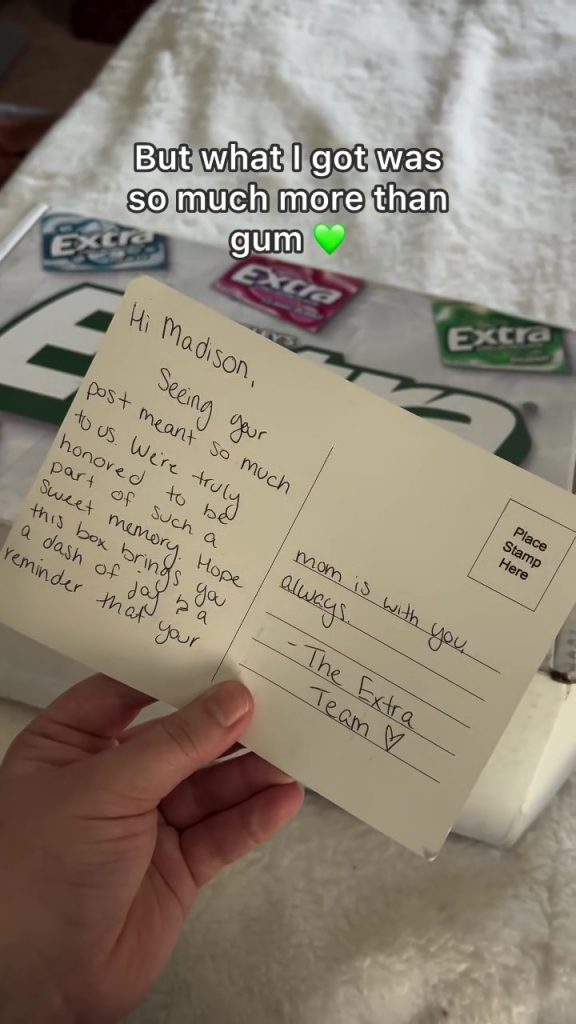 But what I got was
so much more than
gum 💚
Extra
Extra
Extra
Extra
Hi Madison,
Seeing your
post meant so much
to us. We're truly
honored to be
part of such a
sweet memory. Hope
this box brings you
a dash of joy & a
reminder that your
Place
Stamp
Here
mom is with you
always.
- The Extra
Team ♡